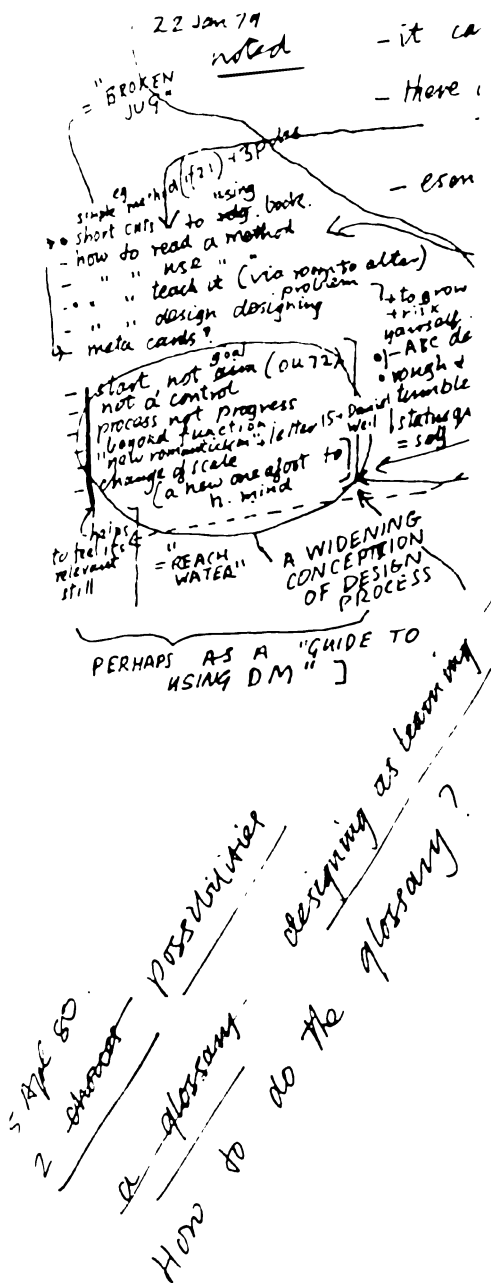 22 Jan 79
noted
- it ca
= "BROKEN
JUG"
- there
simple eg method (1f21) + 3P
- short cuts to using book.
- how to read a method
- " " use "
- " " teach it (via room to alter)
- " " design designing problem
meta cards?
- start not goal (OU 72)
- not a control
- process not progress
- beyond function
- "new romanticism" + letter 15 + Daniel Weil
- change of scale
(a new one afoot to
n. mind
+ to grow
+ risk
yourself
- ABC de
rough &
tumble
status q
= self
helps
to feel it's
relevant
still
= "REACH
WATER"
A WIDENING
CONCEPTION
OF DESIGN
PROCESS
PERHAPS AS A "GUIDE TO
USING DM" ]
5 Apl 80.
2 choices possibilities
a glossary
designing as learning
How to do the glossary?